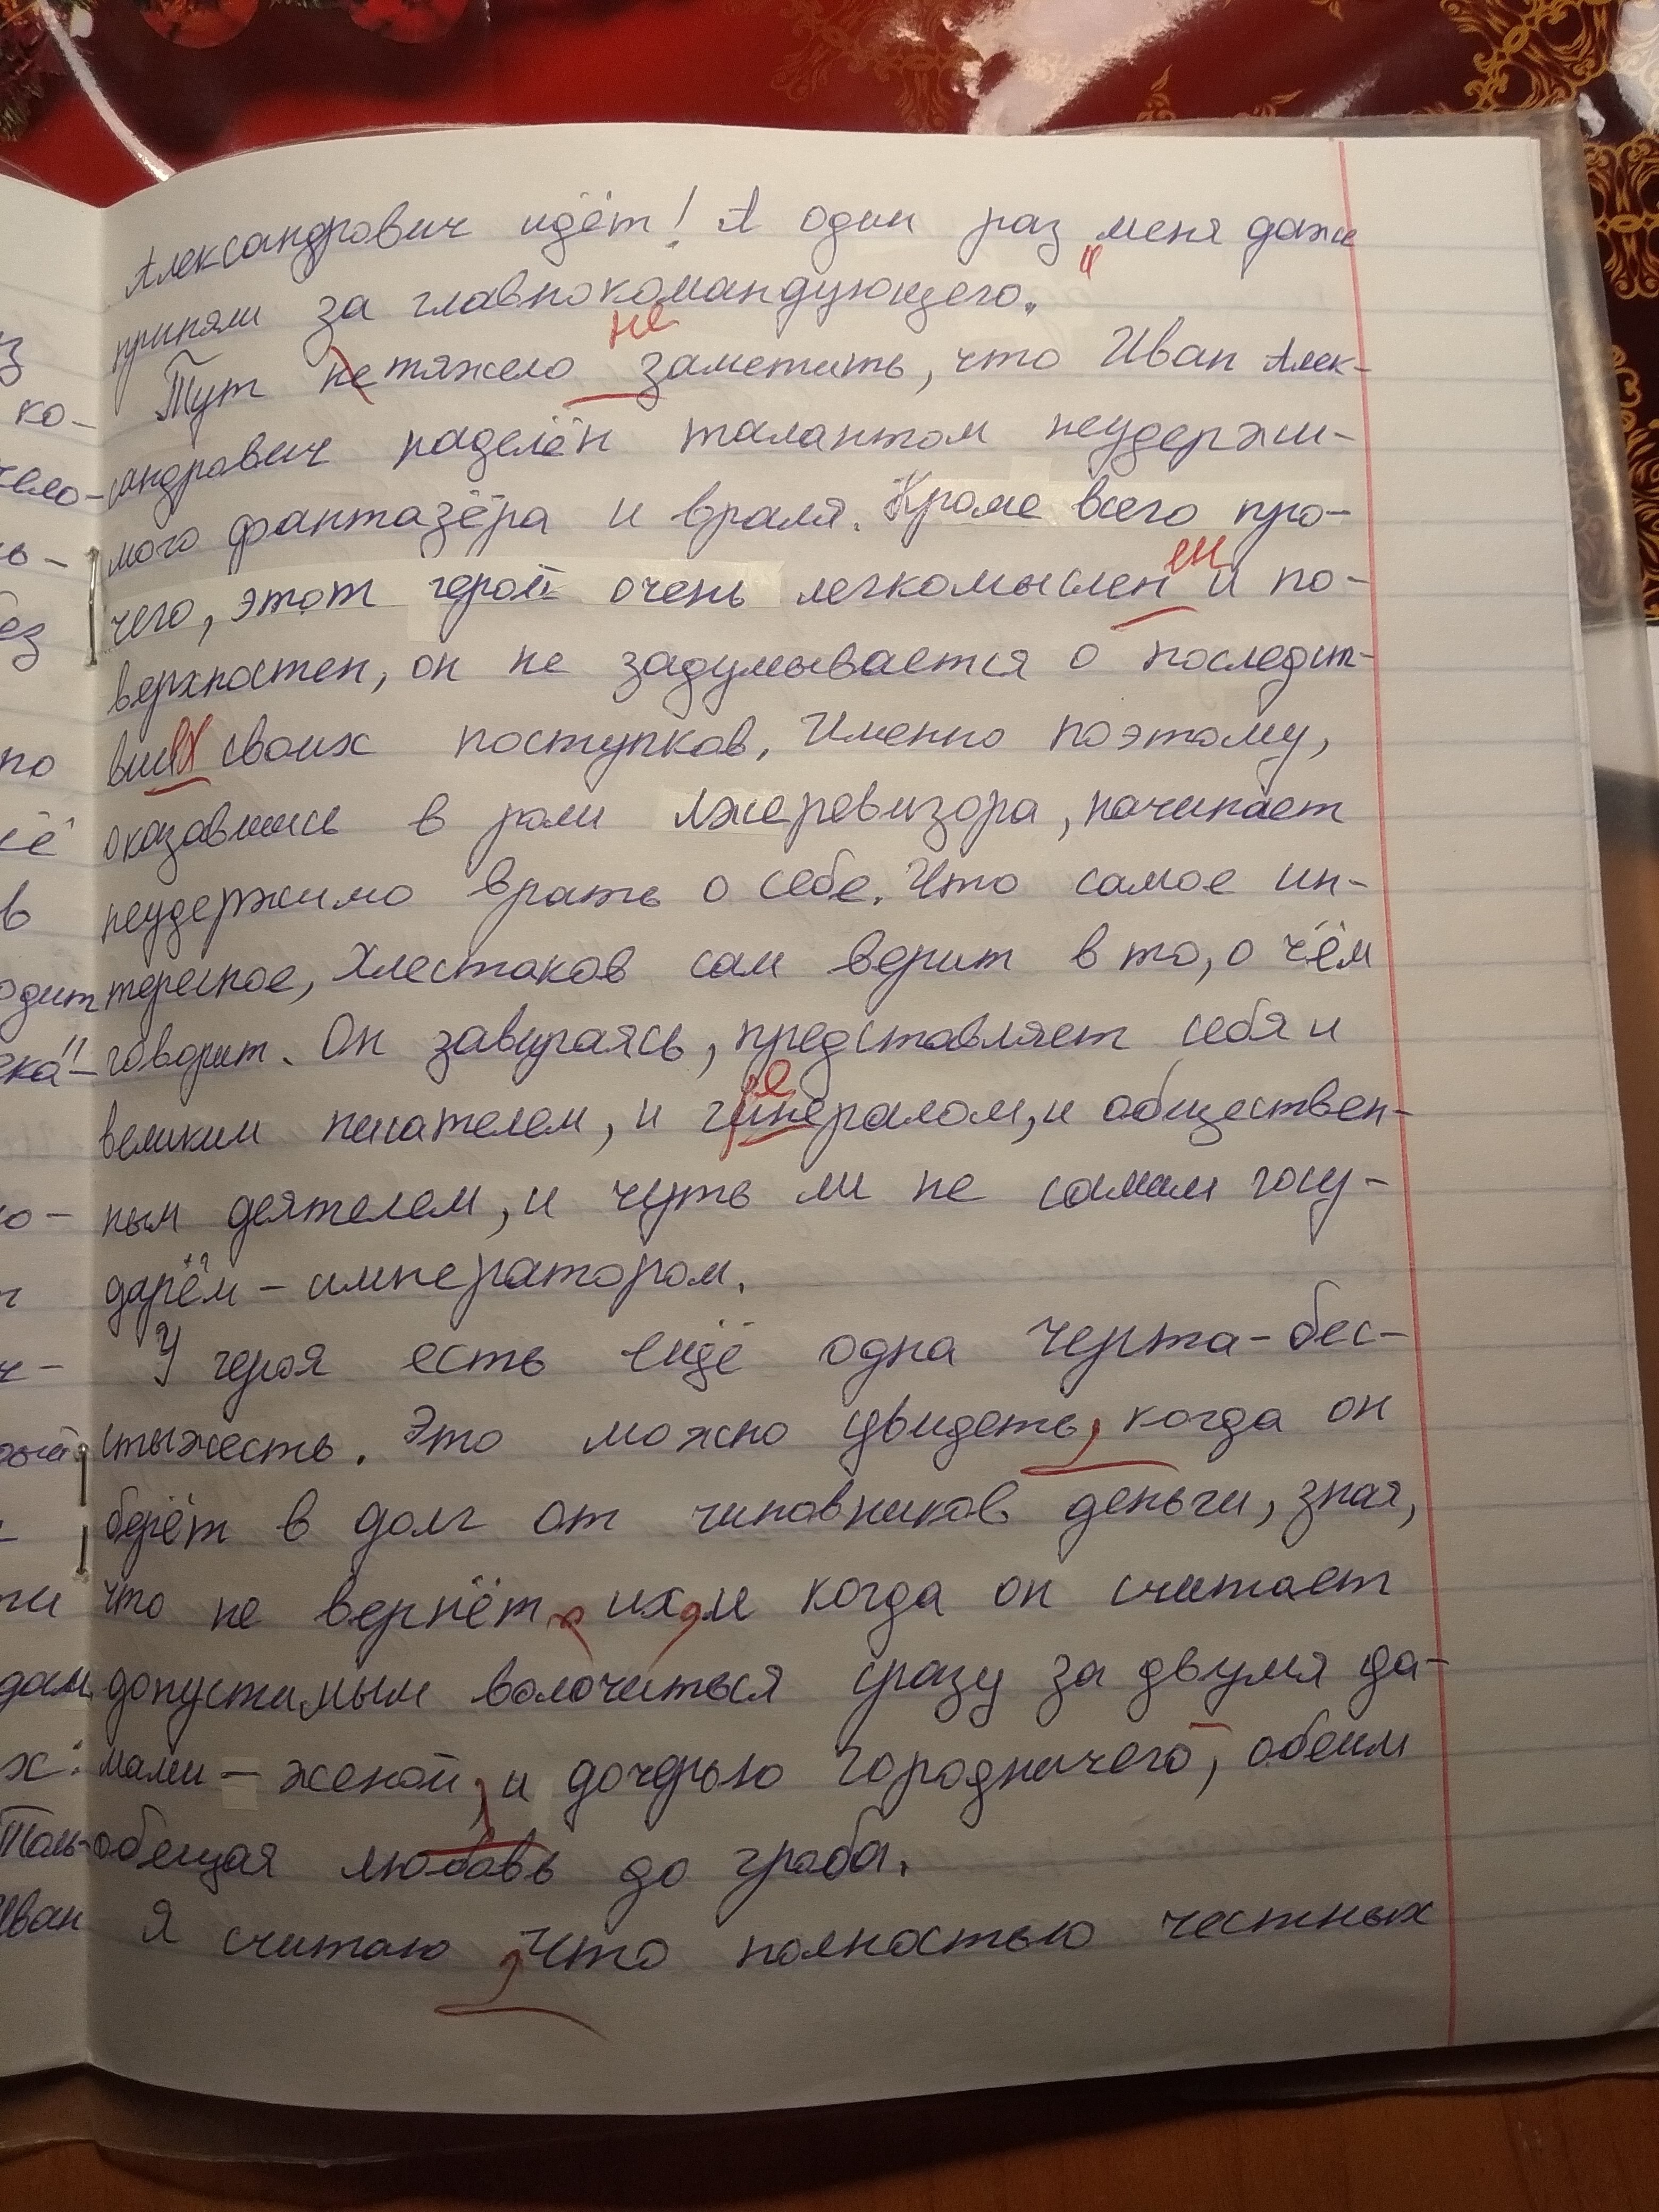 Александрович идёт! А один раз меня даже
"
приняли за главнокомандующего."
не
Тут не тяжело заметить, что Иван Алек-
сандрович наделён талантом неудержи-
мого фантазёра и враля. Кроме всего про-
ен
чего, этот герой очень легкомыслен и по-
верхностен, он не задумывается о последст-
виях своих поступков. Именно поэтому,
оказавшись в роли лжеревизора, начинает
неудержимо врать о себе. Что самое ин-
тересное, Хлестаков сам верит в то, о чём
говорит. Он завираясь, представляет себя и
е
великим писателем, и гинералом, и обществен-
ным деятелем, и чуть ли не самим госу-
дарём - императором.
У героя есть ещё одна черта - бес-
стыжесть. Это можно увидеть, когда он
берёт в долг от чиновников деньги, зная,
что не вернёт их, и когда он считает
допустимым волочиться сразу за двумя да-
мами - женой, и дочерью городничего, обеим
обещая любовь до гроба.
Я считаю, что полностью честных
ко-
чело-
ь-
ез
по
её
в
одит
ка"-
о-
ч-
ти
дам
х:
Толь-
Иван